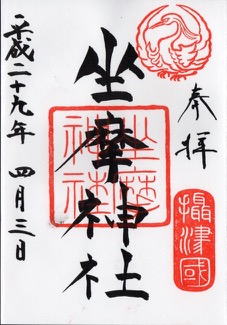 奉拝
摂津國
坐摩神社
坐摩神社
平成二十九年 四月三日